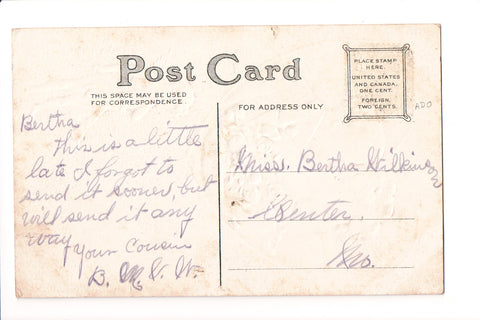 Post Card
THIS SPACE MAY BE USED
FOR CORRESPONDENCE.
FOR ADDRESS ONLY
PLACE STAMP
HERE.
UNITED STATES
AND CANADA,
ONE CENT.
FOREIGN,
TWO CENTS.
ADO
Bertha
This is a little
late I forgot to
send it sooner, but
will send it any
way
Your Cousin
Miss. Bertha Wilkinson
Center,
Mo.